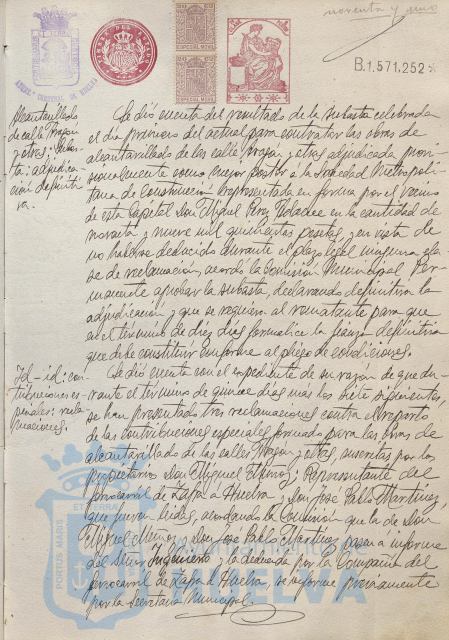 noventa y uno
B.1.571.252
ESPECIAL MOVIL
ESPECIAL MOVIL
Alcantarillado
de calle Aragon
y otras: Subas-
ta: adjudica-
cion definiti-
va.
Se dió cuenta del resultado de la subasta celebrada
el dia primero del actual para contratar las obras de
alcantarillado de las calle Aragon y otras adjudicada provi-
sionalmente como mejor postor a la Sociedad Metropoli-
tana de Construccion representada en forma por el vecino
de esta Capital Don Miguel Perez en la cantidad de
noventa y nueve mil quinientas pesetas, y en vista de
no haberse deducido durante el plazo legal ninguna cla-
se de reclamacion, acordó la Comision Municipal Per-
manente aprobar la subasta, declarando definitiva la
adjudicacion y que se requiera al rematante para que
en el término de diez dias formalice la fianza definitiva
que debe constituir conforme al pliego de condiciones.
Id-id: con-
tribuciones es-
peciales: recla-
maciones:
Se dió cuenta con el expediente de su razón de que du-
rante el término de quince dias mas los siete siguientes,
se han presentado tres reclamaciones contra el reparto
de las contribuciones especiales formado para las obras de
alcantarillado de las calles Aragon y otras, suscritas por los
propietarios Don Miguel; Representante del
ferrocarril de Zafra a Huelva y Don José Pablo Martinez,
que fueron leidas, acordando la Comision que la de Don
Miguel y Don José Pablo Martinez pasen a informe
del Señor Ingeniero y la deducida por la Compañia del
ferrocarril de Zafra a Huelva se informe previamente
por la Secretaria Municipal.
Ayuntamiento de
HUELVA
PORTUS MARIS
ET TERRAE